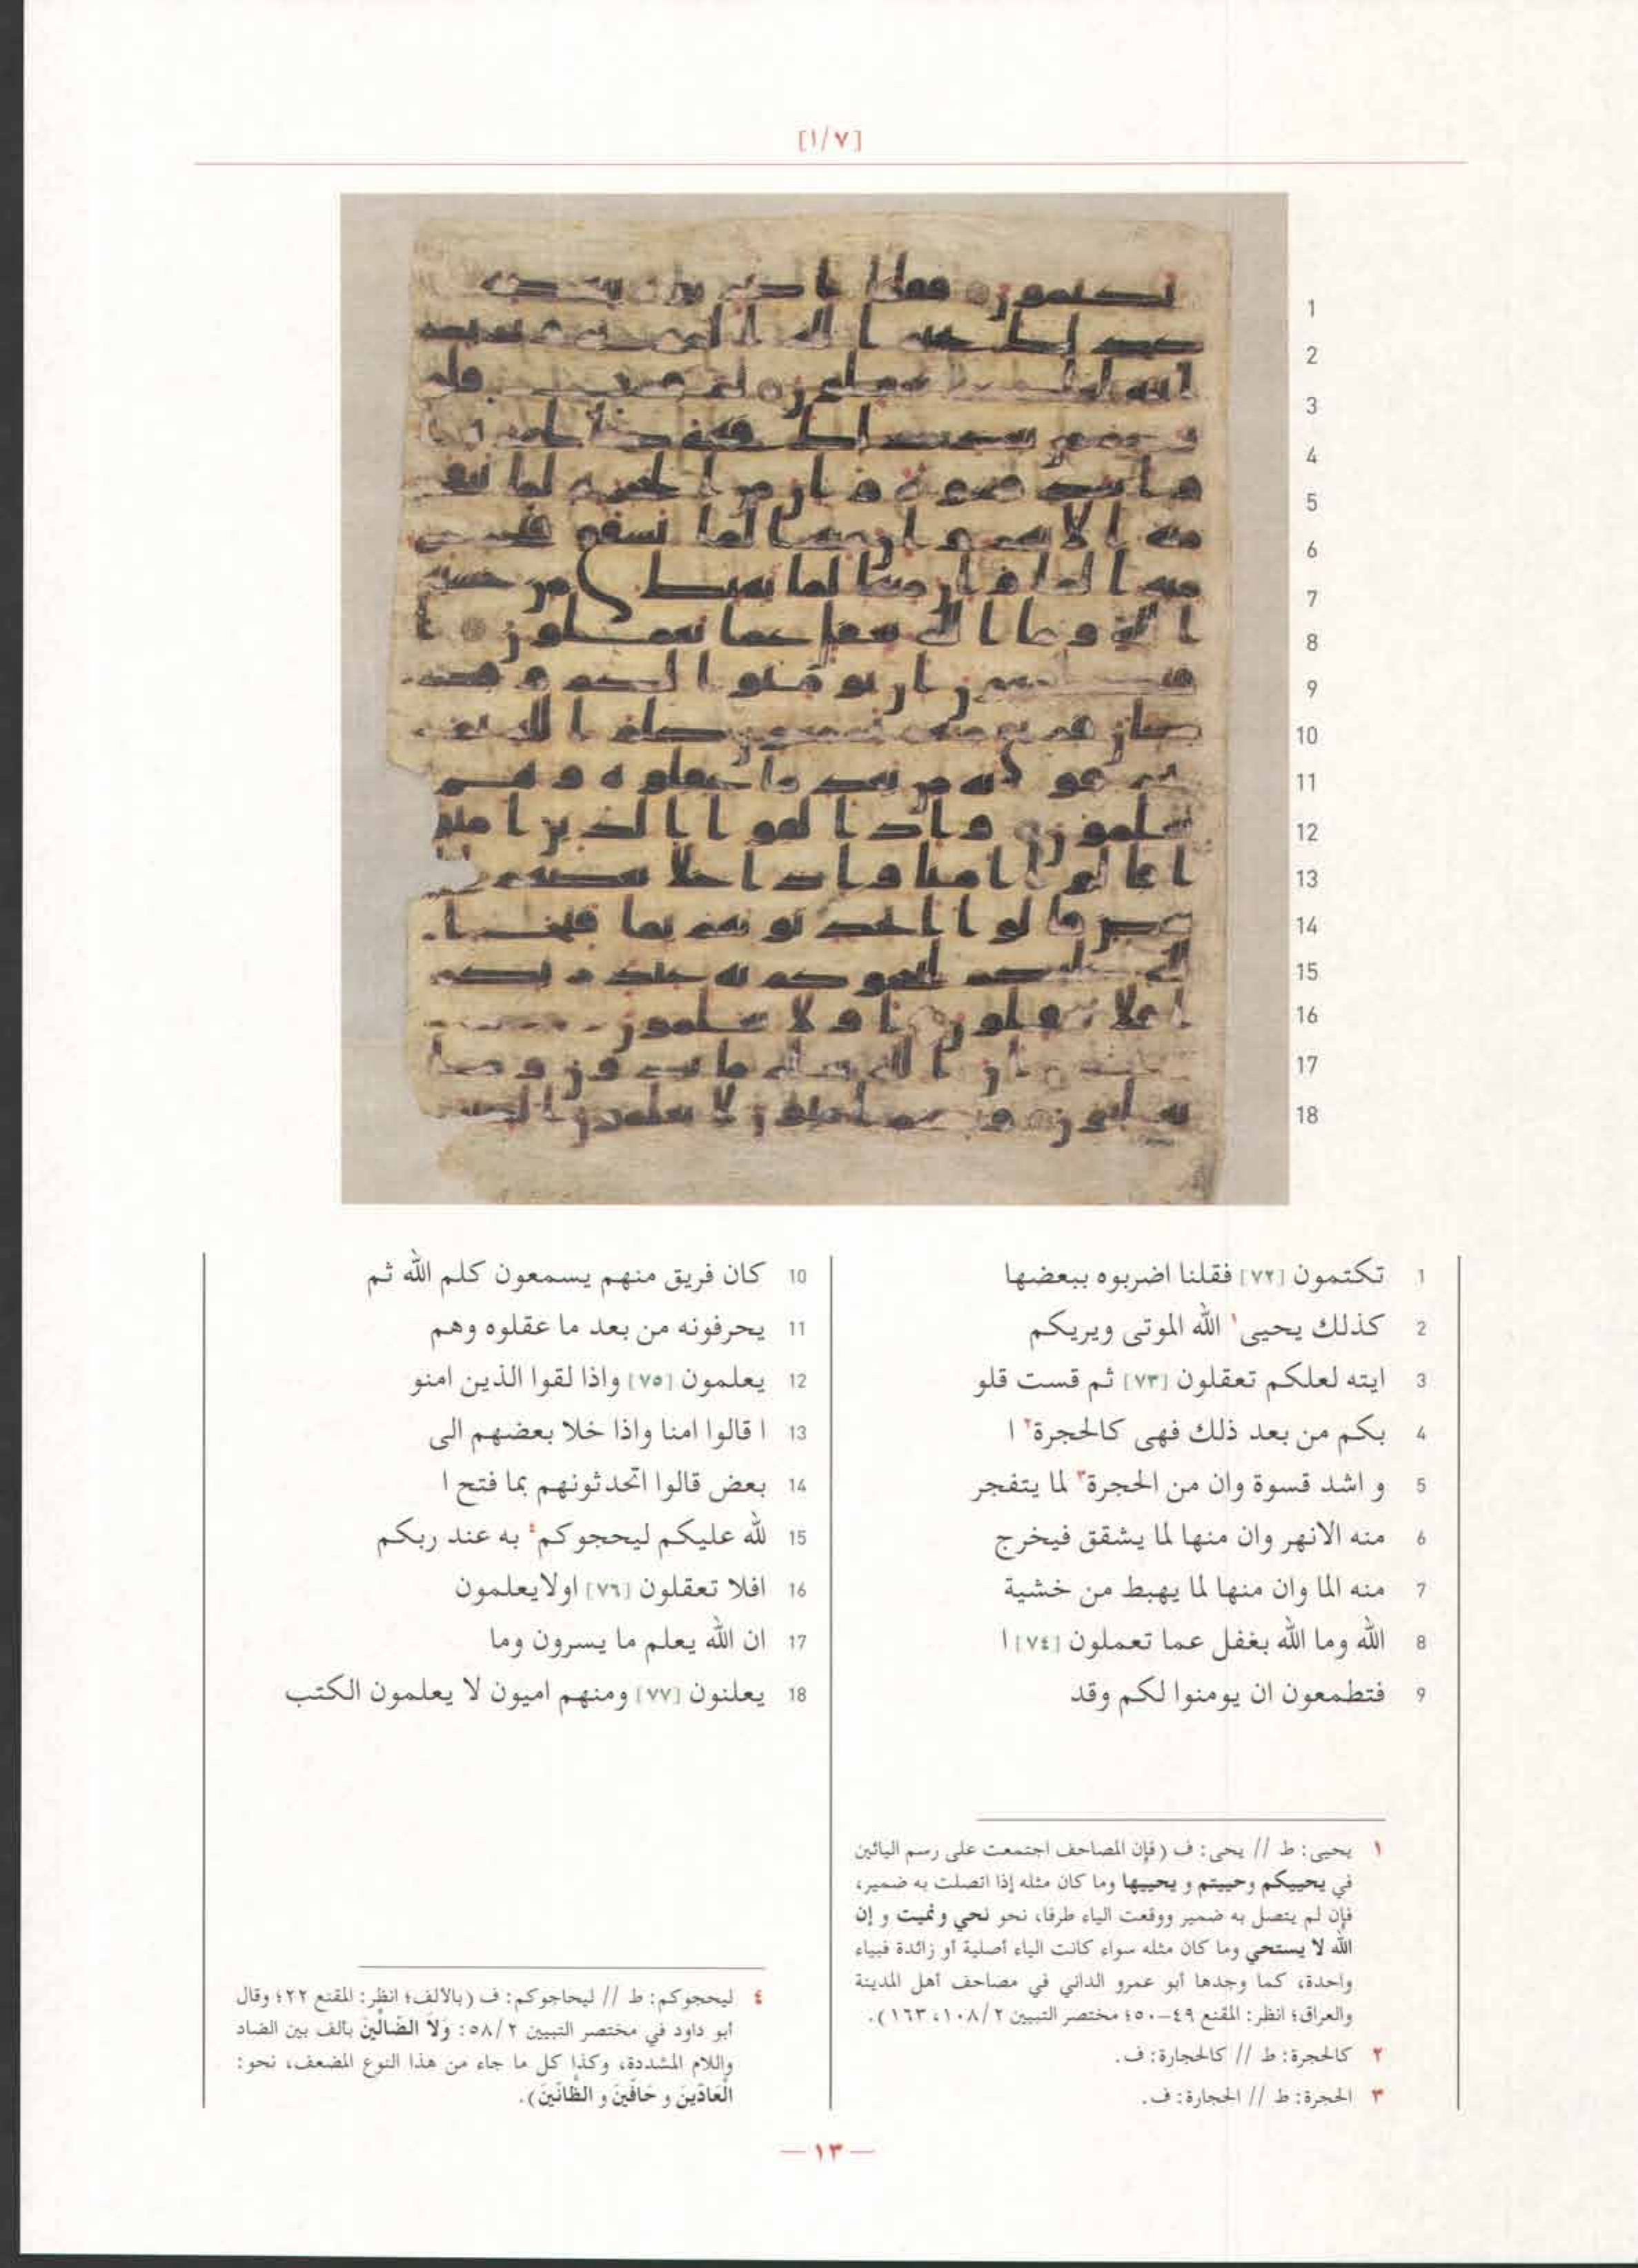 [٧/١]
1
2
3
4
5
6
7
8
9
10
11
12
13
14
15
16
17
18
1 تكتمون [٧٢] فقلنا اضربوه ببعضها
2 كذلك يحيى١ الله الموتى ويريكم
3 ايته لعلكم تعقلون [٧٣] ثم قست قلو
4 بكم من بعد ذلك فهى كالحجرة٢ ا
5 و اشد قسوة وان من الحجرة٣ لما يتفجر
6 منه الانهر وان منها لما يشقق فيخرج
7 منه الما وان منها لما يهبط من خشية
8 الله وما الله بغفل عما تعملون [٧٤] ا
9 فتطمعون ان يومنوا لكم وقد
10 كان فريق منهم يسمعون كلم الله ثم
11 يحرفونه من بعد ما عقلوه وهم
12 يعلمون [٧٥] واذا لقوا الذين امنو
13 ا قالوا امنا واذا خلا بعضهم الى
14 بعض قالوا اتحدثونهم بما فتح ا
15 لله عليكم ليحجوكم٤ به عند ربكم
16 افلا تعقلون [٧٦] اولايعلمون
17 ان الله يعلم ما يسرون وما
18 يعلنون [٧٧] ومنهم اميون لا يعلمون الكتب
١ يحيى: ط // يحى: ف (فإن المصاحف اجتمعت على رسم اليائين
في يحييكم وحييتم و يحييها وما كان مثله إذا اتصلت به ضمير،
فإن لم يتصل به ضمير ووقعت الياء طرفا، نحو نحي ونميت و إن
الله لا يستحي وما كان مثله سواء كانت الياء أصلية أو زائدة فبياء
واحدة، كما وجدها أبو عمرو الداني في مصاحف أهل المدينة
والعراق؛ انظر: المقنع ٤٩-٥٠؛ مختصر التبيين ١٠٨/٢، ١٦٣).
٢ كالحجرة: ط // كالحجارة: ف.
٣ الحجرة: ط // الحجارة: ف.
٤ ليحجوكم: ط // ليحاجوكم: ف (بالألف؛ انظر: المقنع ٢٢؛ وقال
أبو داود في مختصر التبيين ٥٨/٢: وَلاَ الضَالّينَ بألف بين الضاد
واللام المشددة، وكذا كل ما جاء من هذا النوع المضعف، نحو:
العَادّينَ و حَافّينَ و الظَانّينَ).
— ١٣ —